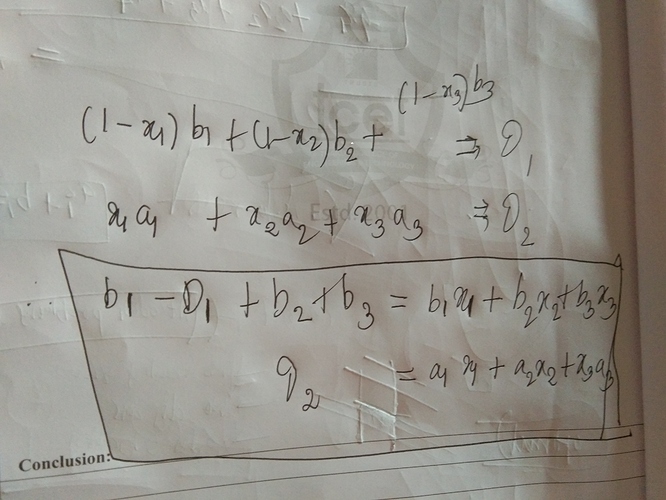 (1-x₃)b₃
(1-x₁) b₁ + (1-x₂)b₂ + ⇒ D₁
x₁a₁ + x₂a₂ + x₃a₃ ⇒ D₂
b₁ - D₁ + b₂ + b₃ = b₁x₁ + b₂x₂ + b₃x₃
D₂ = a₁x₁ + a₂x₂ + x₃a₃
Conclusion: